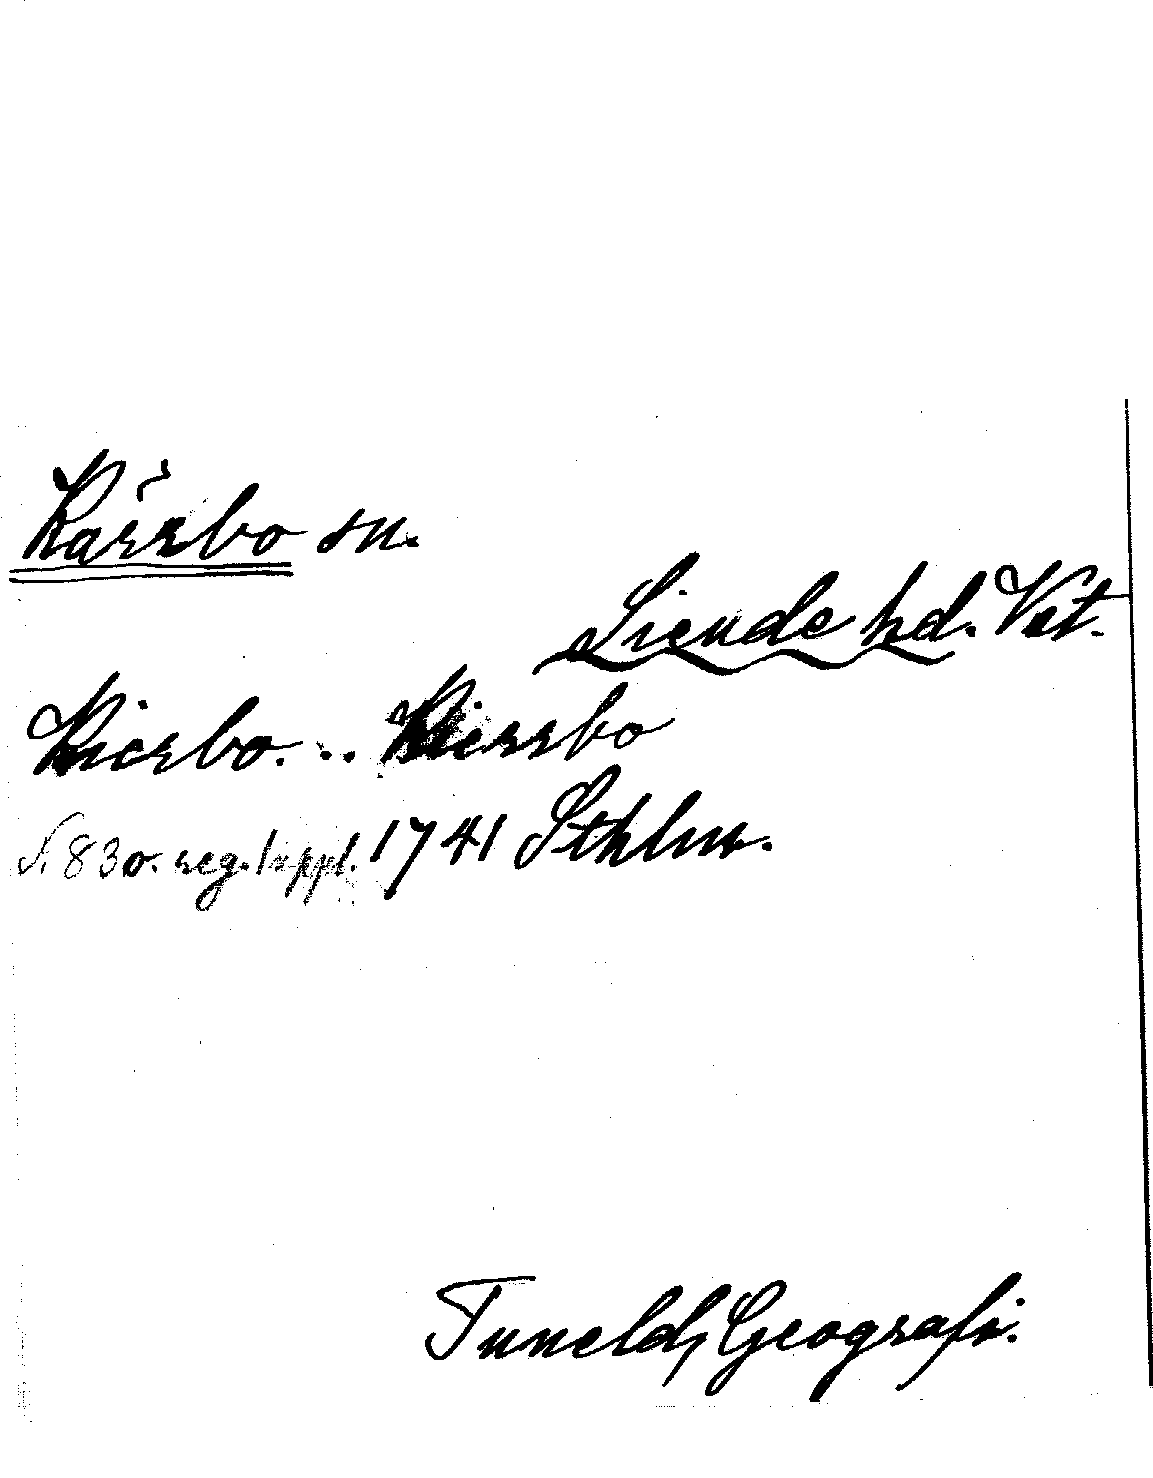 Kärrbo sn.
Siende hd. Vst.
Kierbo. .. Kierrbo
S. 83 o. reg. t. uppl. 1741 Sthlm.
Tuneld, Geografi.